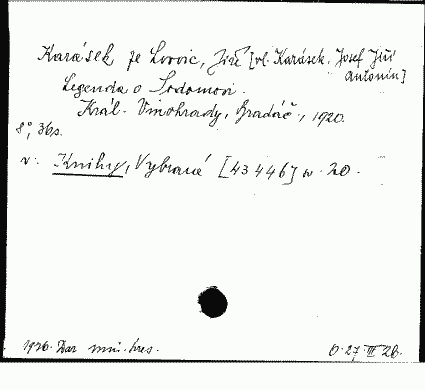 Karásek ze Lvovic, Jiří [vl. Karásek, Josef Jiří
Antonín]
Legenda o Sodomovi.
Král. Vinohrady, Hradáč, 1920.
8°, 36s.
v. Knihy, Vybrané [43446] sv. 20.
1926. Dar min. hres.
6. 27. III 26.